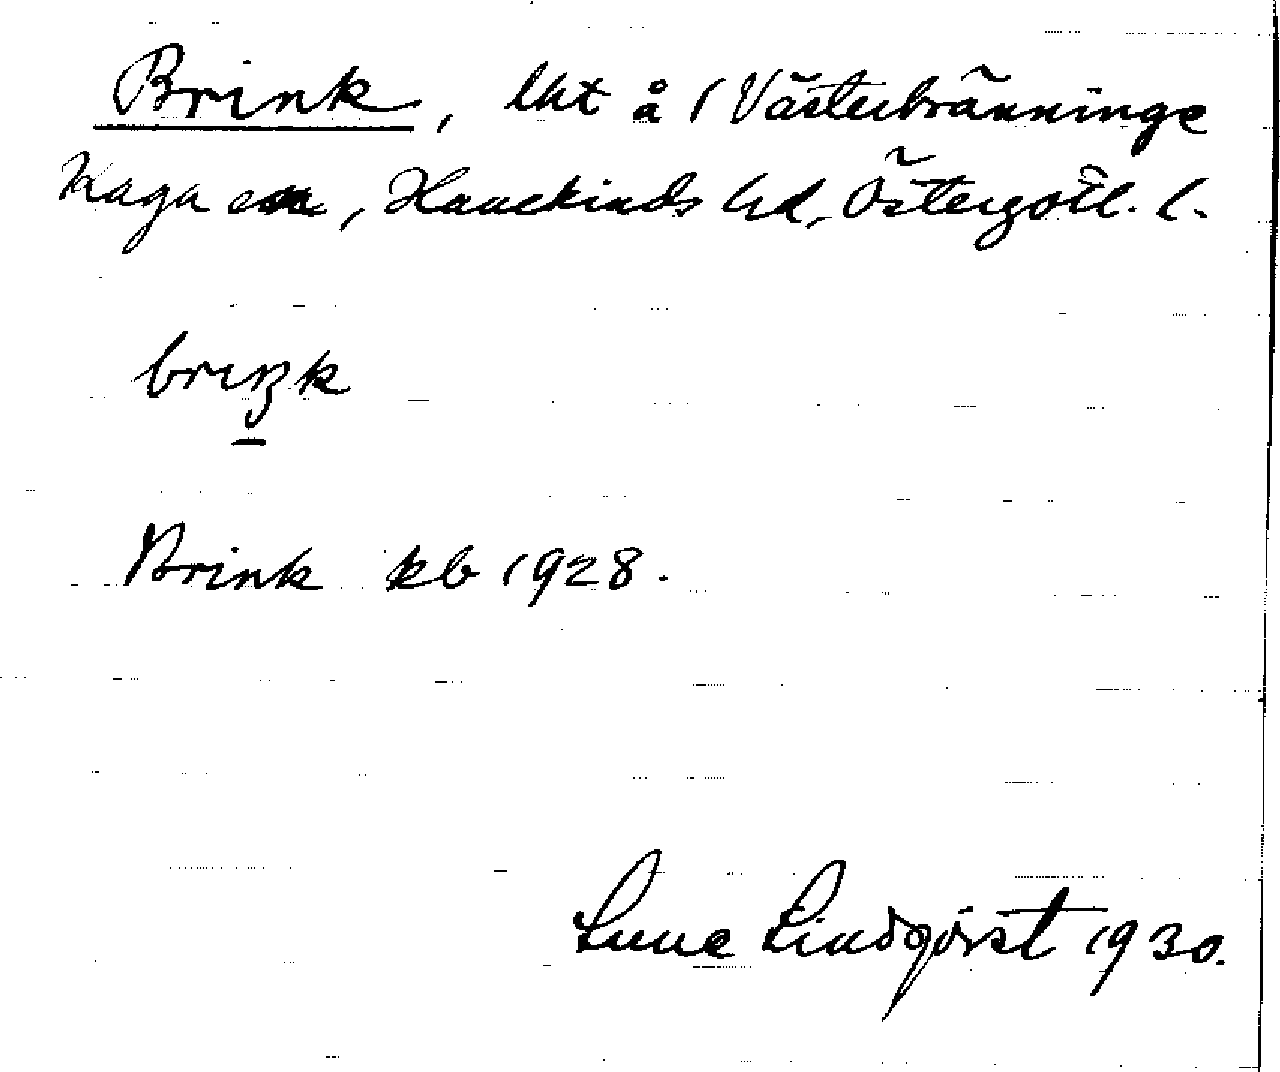 Brink, lht å 1 Västerbränninge
Kaga sn, Hanekinds hd, Östergötl. l.
briŋk
Brink kb 1928.
Sune Lindqvist 1930.